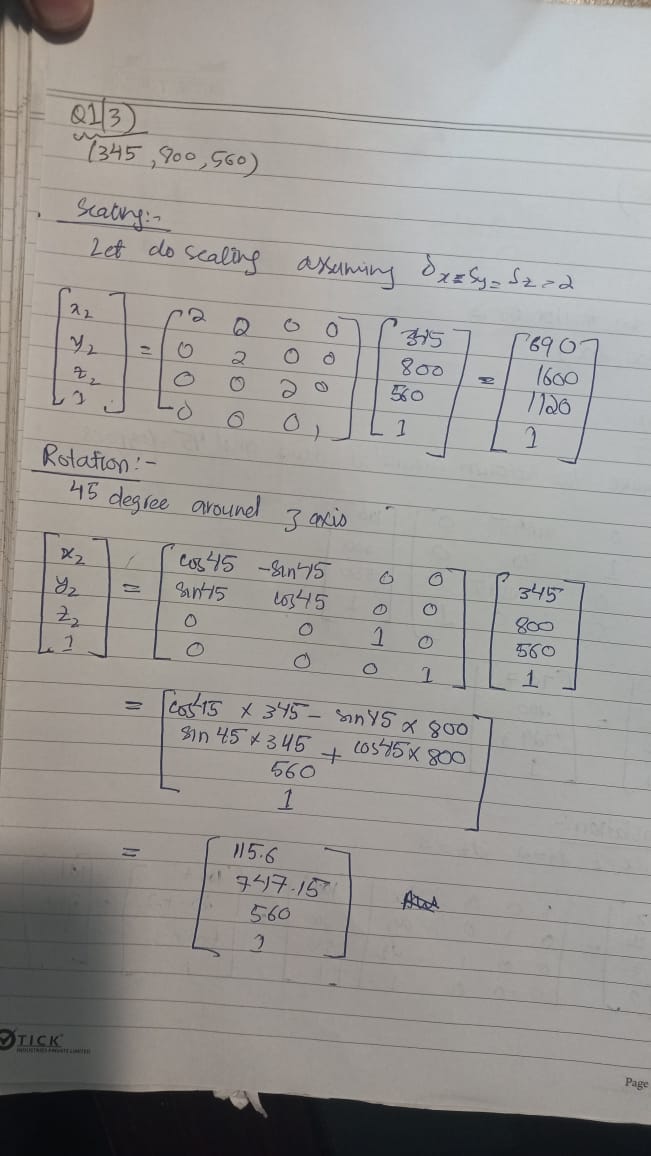 Q1(3)
(345, 800, 560)
Scaling:-
Let do scaling assuming Sx = Sy = Sz = 2
[x2 y2 z2 1] = [2 2 0 0
0 2 0 0
0 0 2 0
0 0 0 1] [345 800 560 1] = [690 1600 1120 1]
Rotation:-
45 degree around z axis
[x2 y2 z2 1] = [cos45 -sin45 0 0
sin45 cos45 0 0
0 0 1 0
0 0 0 1] [345 800 560 1]
= [cos45 × 345 - sin45 × 800
sin45 × 345 + cos45 × 800
560
1]
= [115.6
747.15
560
1]
TICK
INDUSTRIES PRIVATE LIMITED
Page